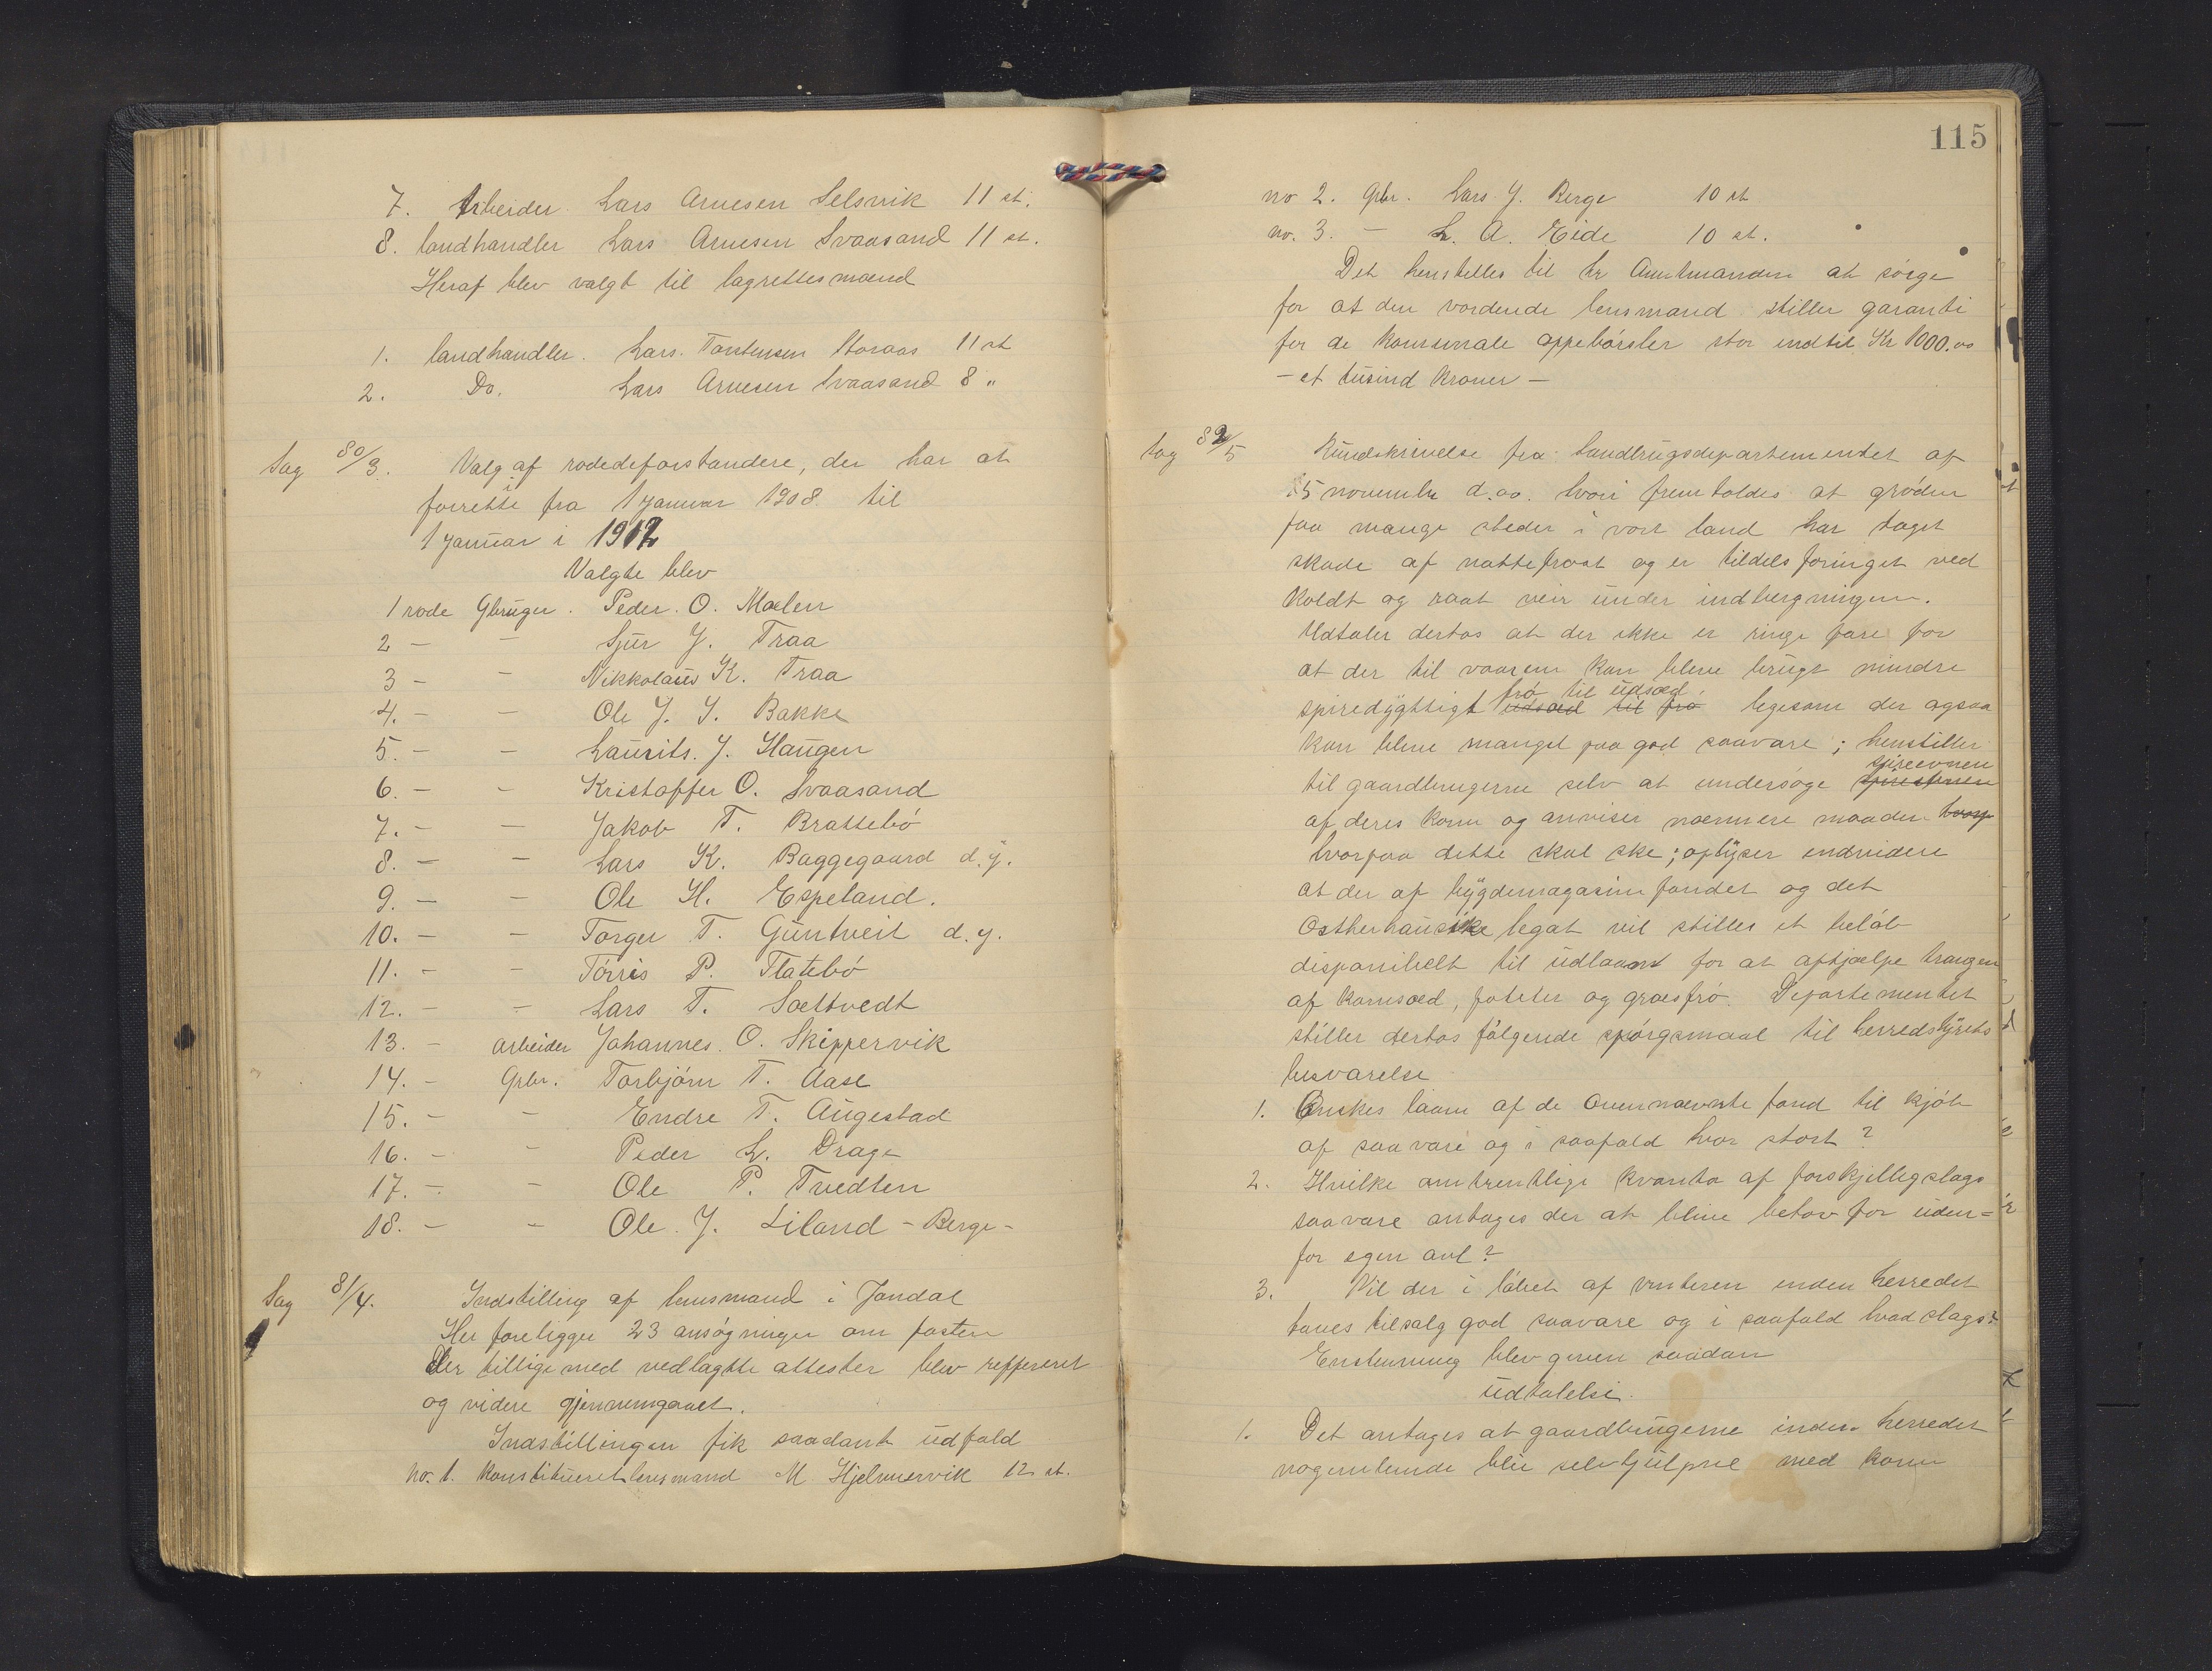 7. Arbeider Lars Arnesen Selsvik 11 st.
8. landhandler Lars Arnesen Svaasand 11 st.
Heraf blev valgt til lagrettesmænd
1. landhandler. Lars. Torstensen Storaas 11 st
2. Do. Lars Arnesen Svaasand 8 "
Sag 80/3. Valg af rodeforstandere, der har at
forrette fra 1 januar 1908 til
1 januar i 1912
Valgte blev
1 rode Gbruger. Peder. O. Mælen
2 - - Sjur J. Traa
3 - - Nikkolaus K. Traa
4. - - Ole J. S. Bakke
5. - - Laurits. J. Haugen
6. - - Kristoffer O. Svaasand
7. - - Jakob T. Brattebó
8. - - Lars K. Baggegaard d.y.
9. - - Ole H. Espeland.
10. - - Torger T. Guntveit d.y.
11. - - Tórris P. Flatebó
12. - - Lars T. Sættvedt
13. - arbeider Johannes. O. Skippervik
14. - Grbr. Torbjórn T. Aase
15. - - Endre T. Augestad
16. - - Peder L. Drage
17. - - Ole P. Tvedten
18. - - Ole. J. Liland - Berge -
Sag 81/4. Indstilling af lensmand i Jondal
Her foreligger 23 ansógninger om posten
der tilligemed vedlagte attester blev reffereret
og videre gjennemgaaet.
Indstillingen fik saadant udfald
no. 1. Konstitueret lensmand M Hjelmervik 12 st.
115
no 2. Gbr. Lars J. Berge 10 st
no. 3. - L. A. Eide 10 st.
Det henstilles til hr Amtmanden at sórge
for at den vordende lensmand stiller garanti
for de kommunale oppebórsler stor indtil Kr 1000.00
- et tusind kroner -
Sag 82/5 Rundskrivelse fra landbrugsdepartementet af
15 novembr d.aa. hvori fremholdes at gróden
paa mange steder i vort land har taget
skade af nattefrost og er tildels forringet ved
koldt og raat veir under indbergningen.
Udtaler derhos at der ikke er ringe fare for
at der til vaaren kan blive brugt mindre
spiredygtigt udsæd til fró fró til udsæd legesom der ogsaa
kan blive mangel paa god saavare; henstiller
til gaardbrugerne selv at undersóge spireevnen
af deres korn og anviser nærmere maaden hvorp
hvorpaa dette skal ske; oplyser endvidere
at der af bygdemagasinfondet og det
Ostherhausike legat vil stilles et belób
disponibelt til udlaant for at afhjælpe trangen
af kornsæd, poteter og græsfró. Departementet
stiller derhos fólgende spórgsmaal til herredstyrets
besvarelse
1. Ónskes laan af de ovennævnte fond til kjób
af saavare og i saafald hvor stort?
2. Hvilke omtrentlige kvanta af forskjelligslags
saavare antages der at blive behov for uden=
for egen avl?
3. Vil der i lóbet af vinteren inden herredet
haves tilsalg god saavare og i saafald hvad slags?
Enstemmig blev given saadan
udtalelse.
1. Det antages at gaardbrugerne inden herredet
nogenlunde blir selvhjulpne med korn